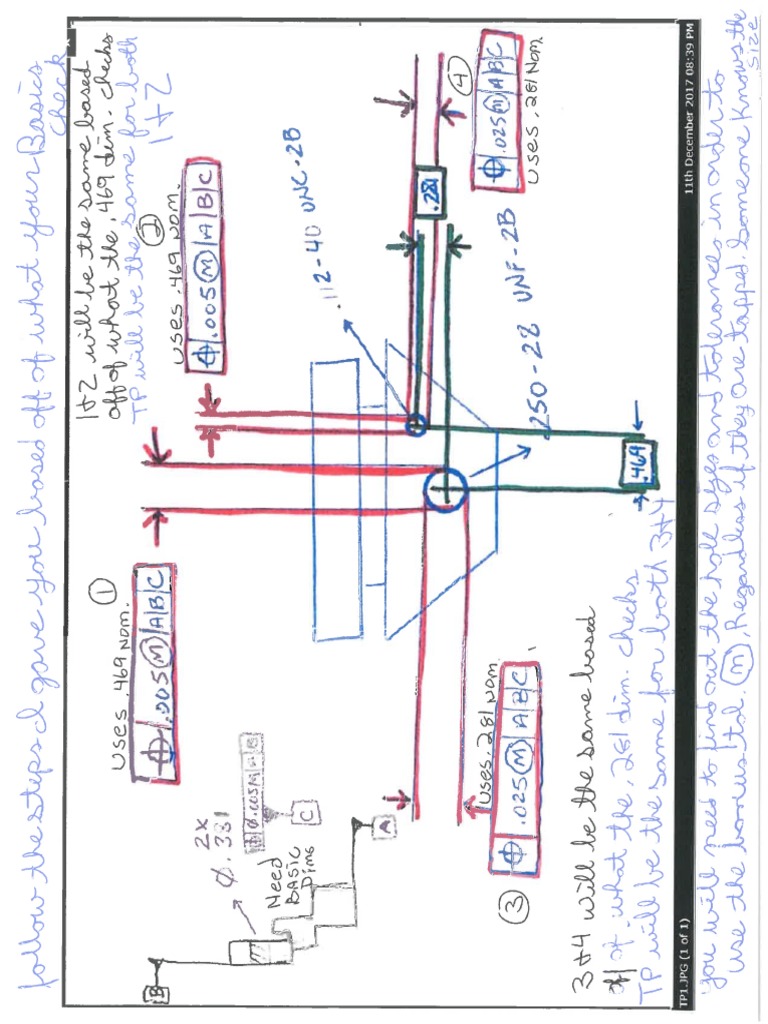 follow the steps I gave you based off of what your Basics
check
1+2 will be the same based
off of what the .469 dim. checks
TP will be the same for both
1+2
①
uses .469 NOM.
⌖ .005 Ⓜ A B C
②
uses .469 NOM.
⌖ .005 Ⓜ A B C
.112-40 UNC-2B
④
⌖ .025 Ⓜ A B C
uses .281 NOM.
.281
250-28 UNF-2B
.469
2X
Ø.381
⌖ Ø.005 Ⓜ A B
C
NEED
BASIC
Dims
B
A
uses .281 NOM.
⌖ .025 Ⓜ A B C
③
3+4 will be the same based
off of what the .281 dim. checks
TP will be the same for both 3+4
TP1.JPG (1 of 1)
11th December 2017 08:39 PM
you will need to find out the hole sizes and tolerances in order to
use the bonus tol. Ⓜ, Regardless if they are tapped. Someone knows the
size